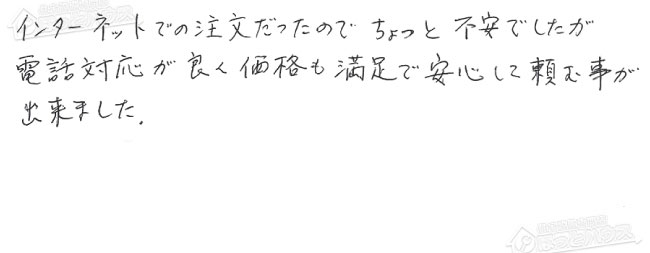 インターネットでの注文だったので ちょっと 不安でしたが
電話対応が良く価格も満足で安心して頼む事が
出来ました.